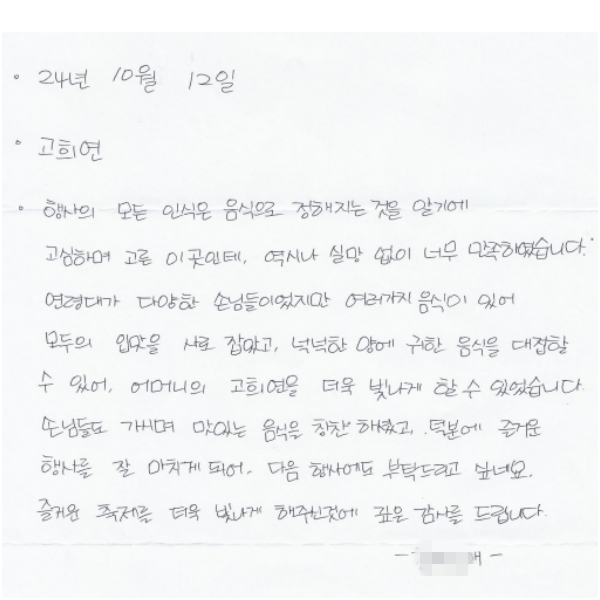 • 24년 10월 12일
• 고희연
• 행사의 모든 인식은 음식으로 정해지는 것을 알기에
고심하며 고른 이곳인데, 역시나 실망 없이 너무 만족하였습니다.
연령대가 다양한 손님들이었지만 여러가지 음식이 있어
모두의 입맛을 사로 잡았고, 넉넉한 양에 귀한 음식을 대접할
수 있어, 어머니의 고희연을 더욱 빛나게 할 수 있었습니다.
손님들도 가시며 맛있는 음식을 칭찬 해줬고, 덕분에 즐거운
행사를 잘 마치게 되어, 다음 행사에도 부탁드리고 싶네요.
즐거운 축제를 더욱 빛나게 해주신것에 깊은 감사를 드립니다.